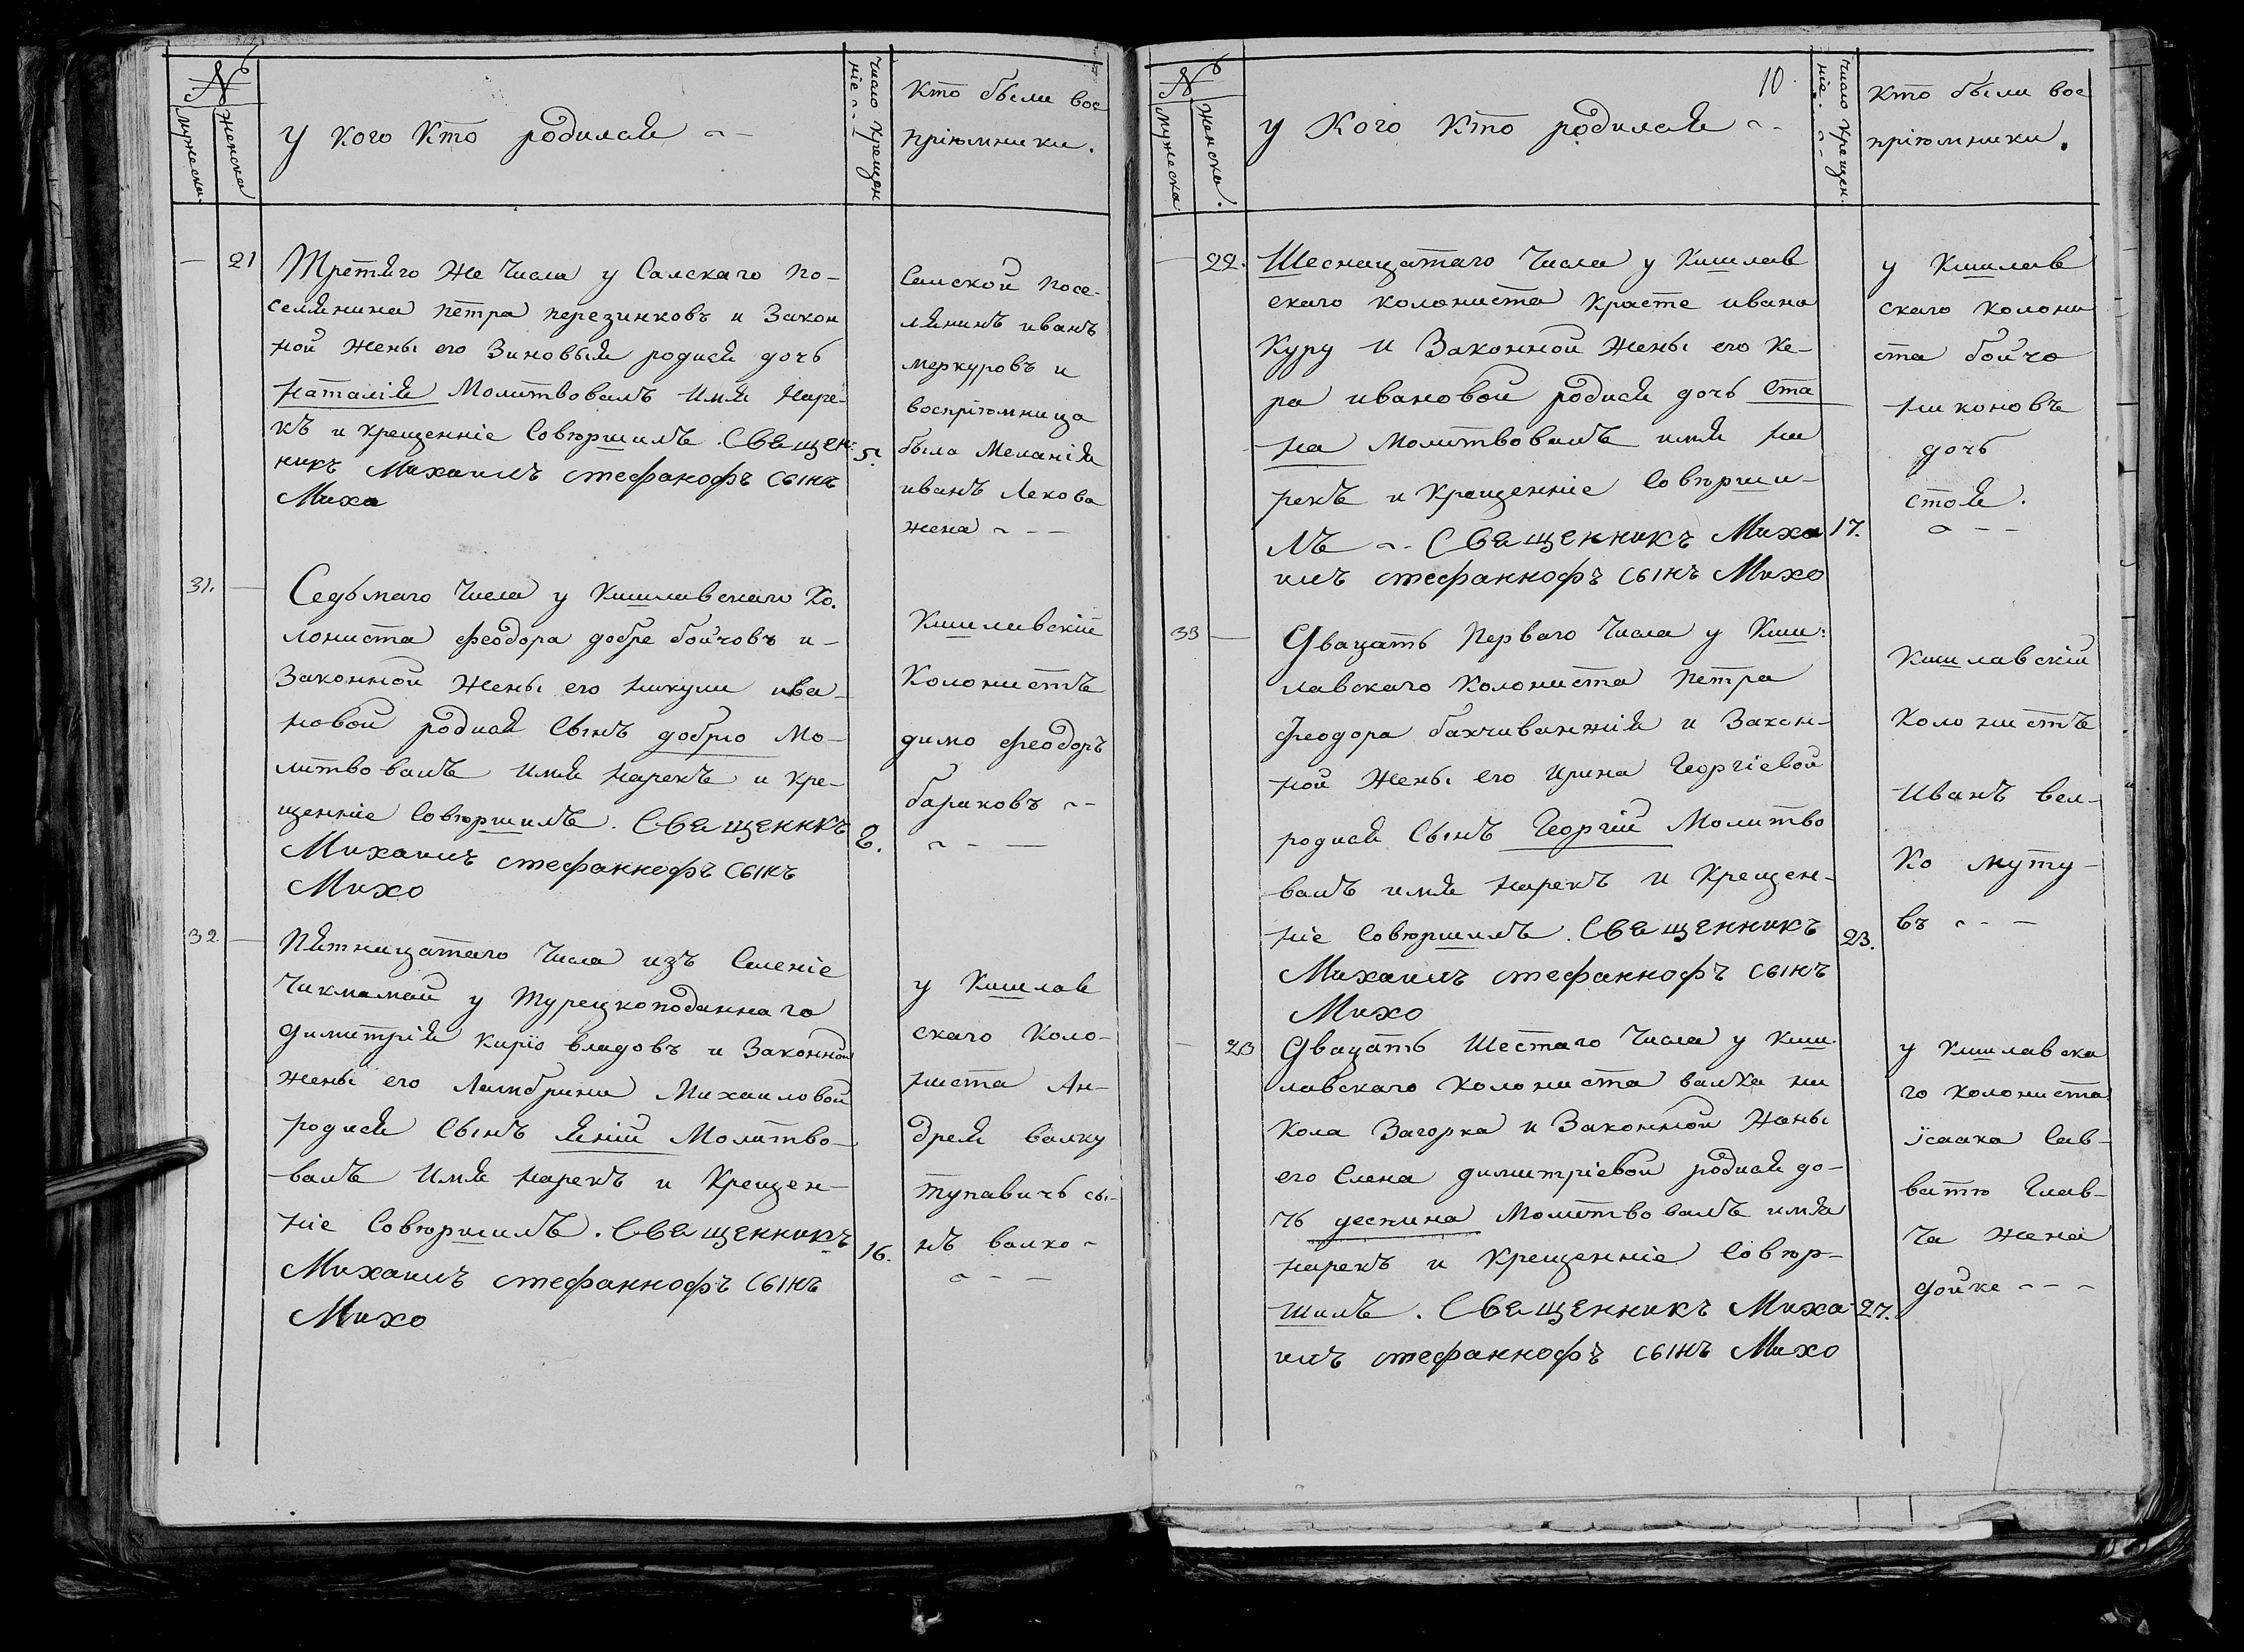 №
мужеска
женска
у кого кто родилсѧ
число крещен
ніе
кто были вос
пріюмники.
21
Третѧго же Числа у Салскаго по-
селѧнина петра перезинковъ и Закон
ной жены его Зиновыѧ родисѧ дочь
наталіѧ Молитвовалъ имѧ наре-
къ и крещенніе Совюршилъ. Свещен:
никъ Михаилъ стефанофъ сынъ
Михо
5.
Салской посе-
лѧнинъ иванъ
меркуровъ и
воспріюмница
была Меланіѧ
иванъ Лекова
жена
31.
Седьмаго Числа у Кишлавскаго Ко.
лониста феодора добре бойчовъ и
Законной жены его никули ива-
новой родисѧ Сынъ добрю Мо-
литвовалъ имѧ нарекъ и кре-
щенніе Совюршилъ. Свещенникъ
Михаилъ стефаннофъ сынъ
Михо
8.
Кишлавскій
Колонистъ
димо феодоръ
бариковъ
32
Пѧтнацатаго Числа изъ Селеніе
Чикмамай у Турецкоподаннаго
димитріѧ кирїо владовъ и Законной
жены его Ламбрини Михаиловой
родисѧ Сынъ ѧній Молитво-
-валъ имѧ нарекъ и Крещен-
ніе Совюршилъ. Свещенникъ
Михаилъ стефаннофъ сынъ
Михо
16.
у Кишлав
скаго Коло-
ниста Ан-
дреѧ валку
тупавичъ сы-
нъ валко
10.
№
мужеска
женска.
у Кого Кто родилсѧ
число крещен.
ніе.
Кто были вос
пріюмники.
22.
Шеснацатаго Числа у Кишлав
скаго колониста Красте ивана
Куру и Законной жены его Ке-
ра ивановой родисѧ дочь Ста
на молитвовалъ имѧ на
рекъ и Крещенніе Совюрши-
лъ Свещенникъ Миха
илъ стефаннофъ сынъ Михо
17.
у Кишлав
скаго Колони
ста бойчо
никоновъ
дочь
стоѧ.
33
Двацать Перваго Числа у Киш:
лавскаго Колониста Петра
Феодора бахчиванжіѧ и Закон-
ной жены его Ирина Георгіевой
родисѧ Сынъ Георгій Молитво
валъ имѧ нарекъ и Крещен-
ніе Совюршилъ. Свещенникъ
Михаилъ стефаннофъ сынъ
Михо
23.
Кишлавскій
Колонистъ
Иванъ вел-
ко муту-
въ
23
Двацать Шестаго Числа у Киш
лавскаго колониста валка ни
кола Загорка и Законной жены
его Елена димитріевой родисѧ до-
чь деспина Молитвовалъ имѧ
нарекъ и Крещенніе Совюр-
шилъ. Свещенникъ Миха
илъ стефаннофъ сынъ Михо
27.
у Кишлавска
го колониста
їсаака Сав-
ватю Глав-
ча жена
дойке